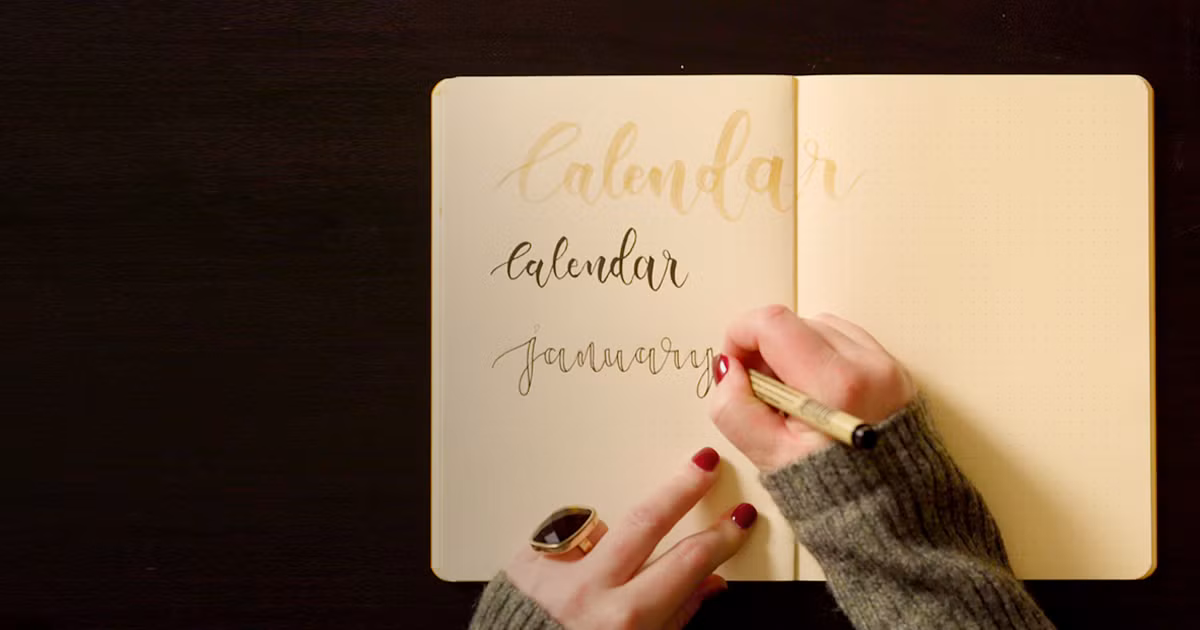 Calendar
calendar
january